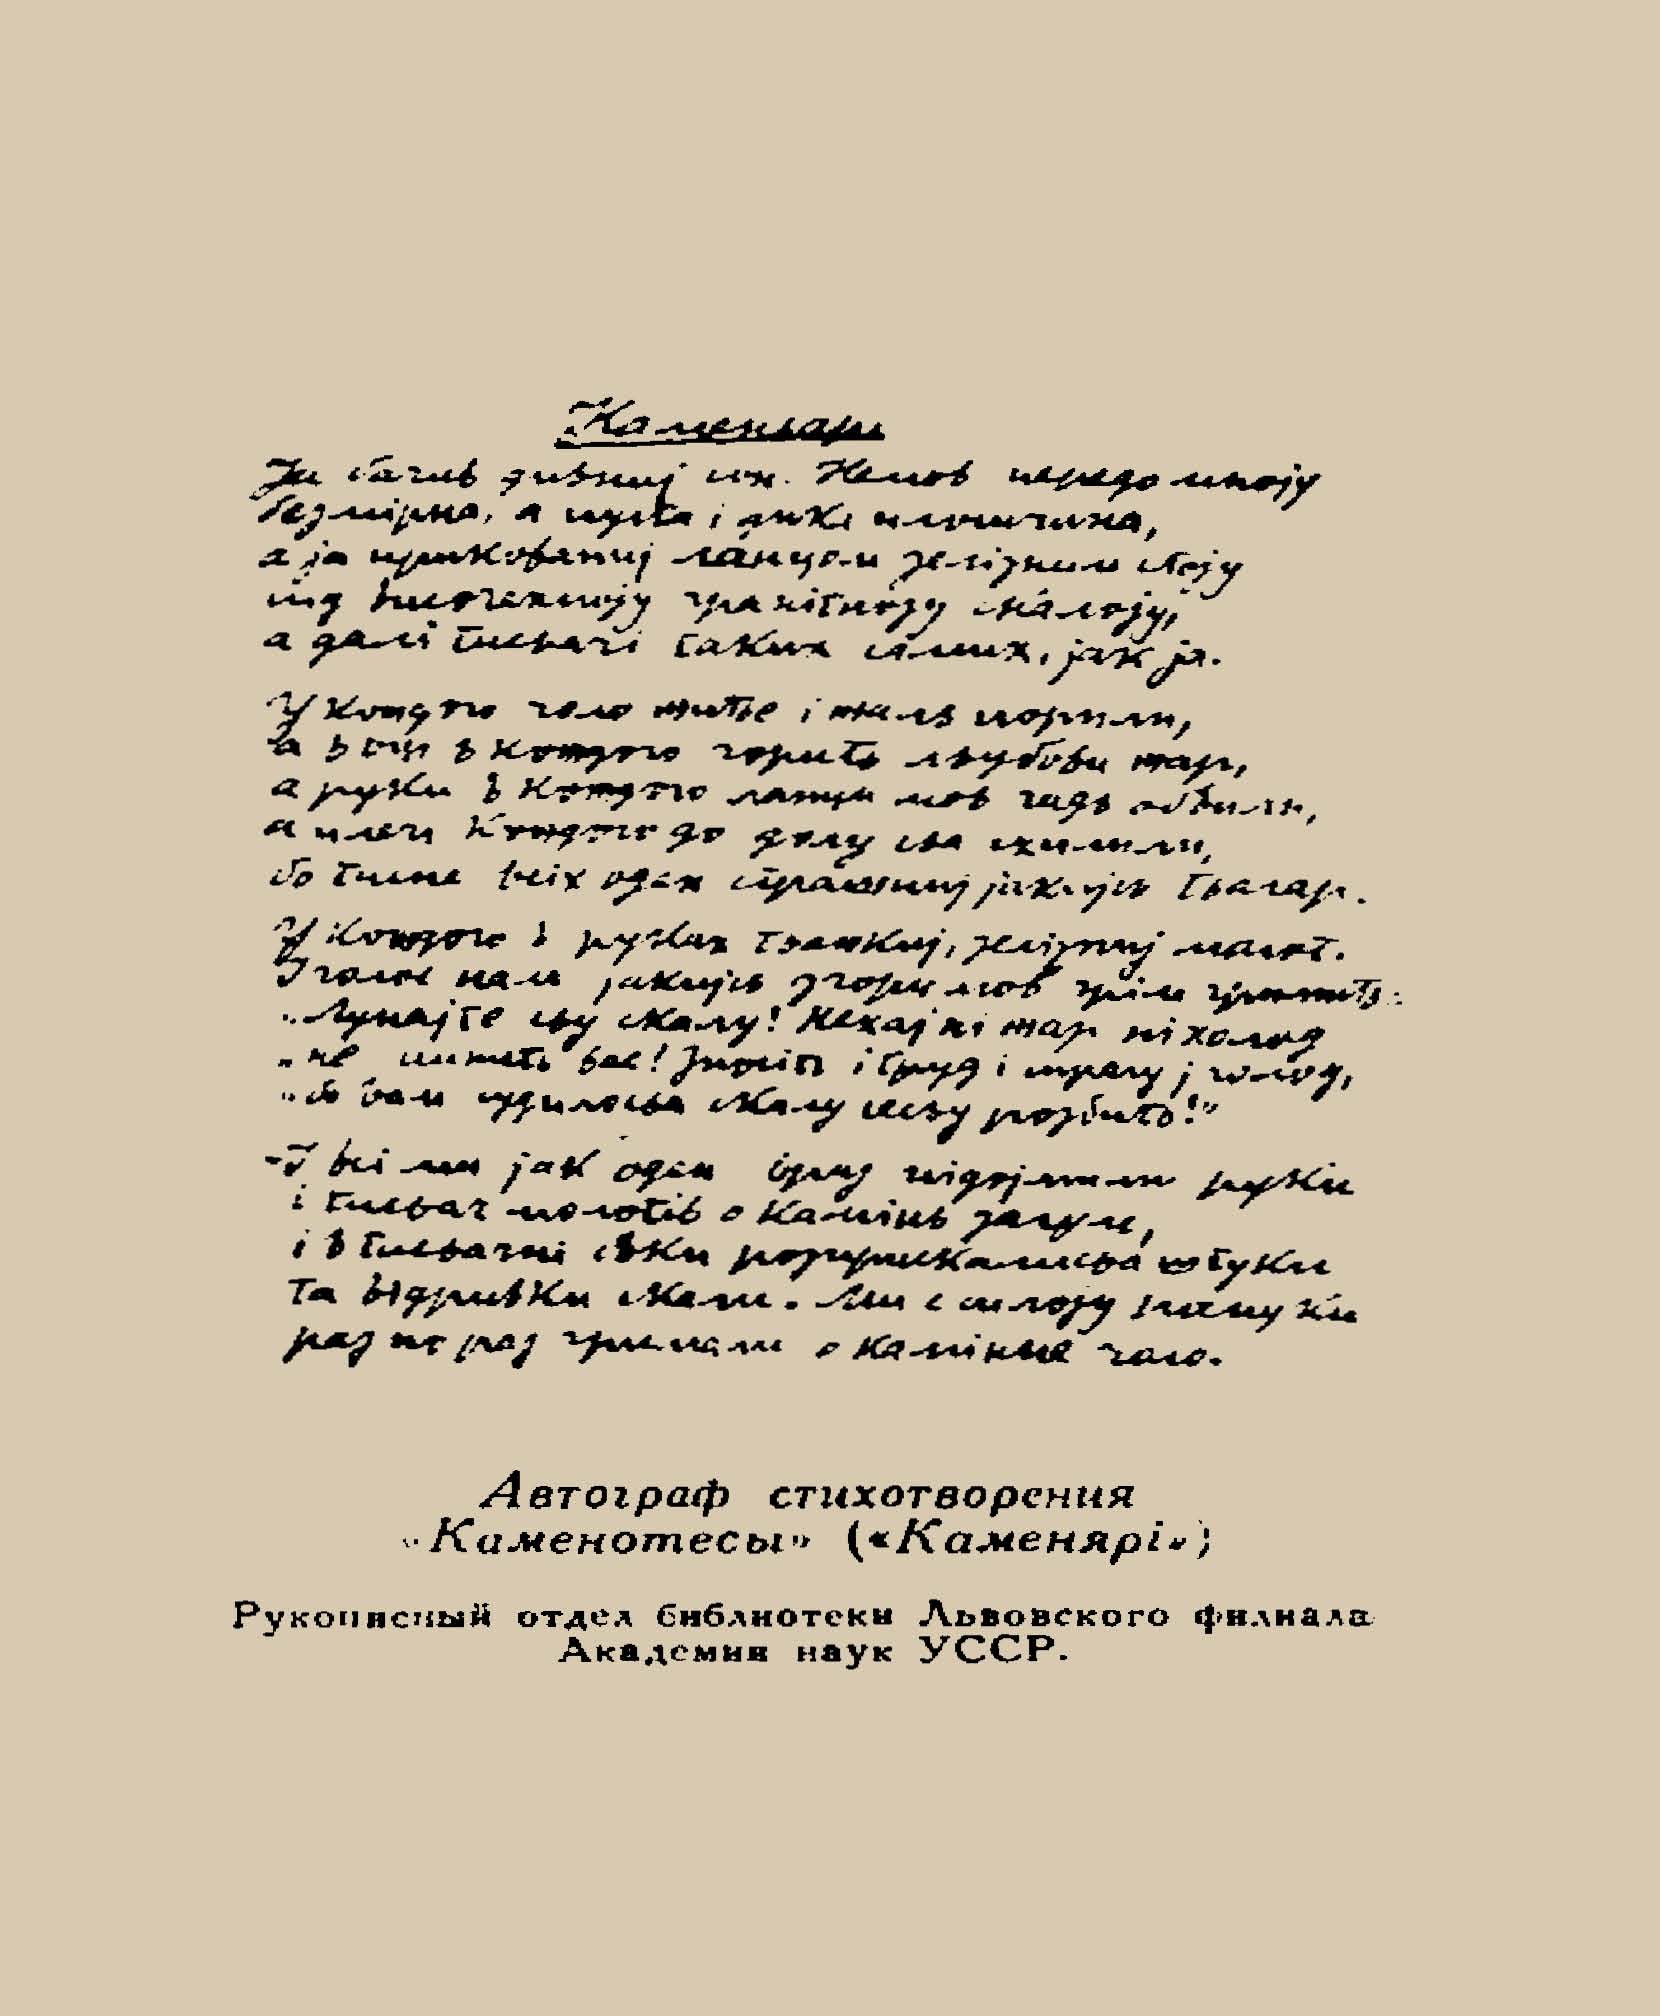 Каменьарі
Ја бачив дивниј сон. Немов передо мноју
безмірна, а пуста і дика плошчина,
а ја прикованиј ланцом зелізним стоју
під височенноју гранітноју скалоју,
а далі тисьачі таких самих, јак ја.
У кождого чоло житье і жаль порили,
а в оці в кождого горить льубови жар,
а руки в кождого ланци мов гадь обвили,
а плечі кождого до долу сьа схилили,
бо тисне всіх оден страшниј јакијсь тьагар.
У кождого в руках тьажкиј, зелізниј молот.
І голос нам јакијсь згори мов грім гримить:
„Лупајте сьу скалу! Нехај ні жар ні холод
„не спинить вас! Зносіть і труд і спрагу ј голод,
„бо вам судилосьа скалу сесьу розбить!"
І всі ми јак оден враз підојмили руки
і тисьач молотів о камінь загуло,
і в тисьачні боки розприскалисьа штуки
та відривки скали. Ми с силоју розпуки
раз по раз гримали о камінне чоло.
Автограф стихотворения
«Каменотесы» («Каменярі»)
Рукописный отдел библиотеки Львовского филиала
Академии наук УССР.